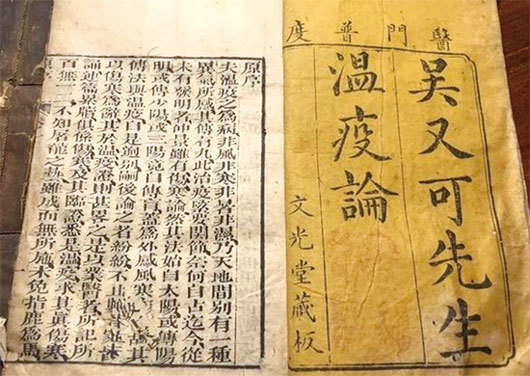 醫門普度
吳又可先生
溫疫論
文光堂藏板
原序
夫溫疫之為病非風非寒非暑非濕乃天地間別有一種
異氣所感其傳有九此治疫緊要關節奈何自古迄今從
未有明者仲景雖傷寒論然其法始自太陽或傳陽
明或傳少陽或三陽竟自傳胃蓋為外感風寒故其
傳法與溫疫自是迥別嗣後論之者紛紛不止
以傷寒為辭其於溫疫證則甚畧之是以業醫者所記所
誦連篇累牘俱係傷寒及其臨證悉是溫疫求其真傷寒
百無一二不知屠龍之藝雖成而無所施未免指鹿為馬
原序